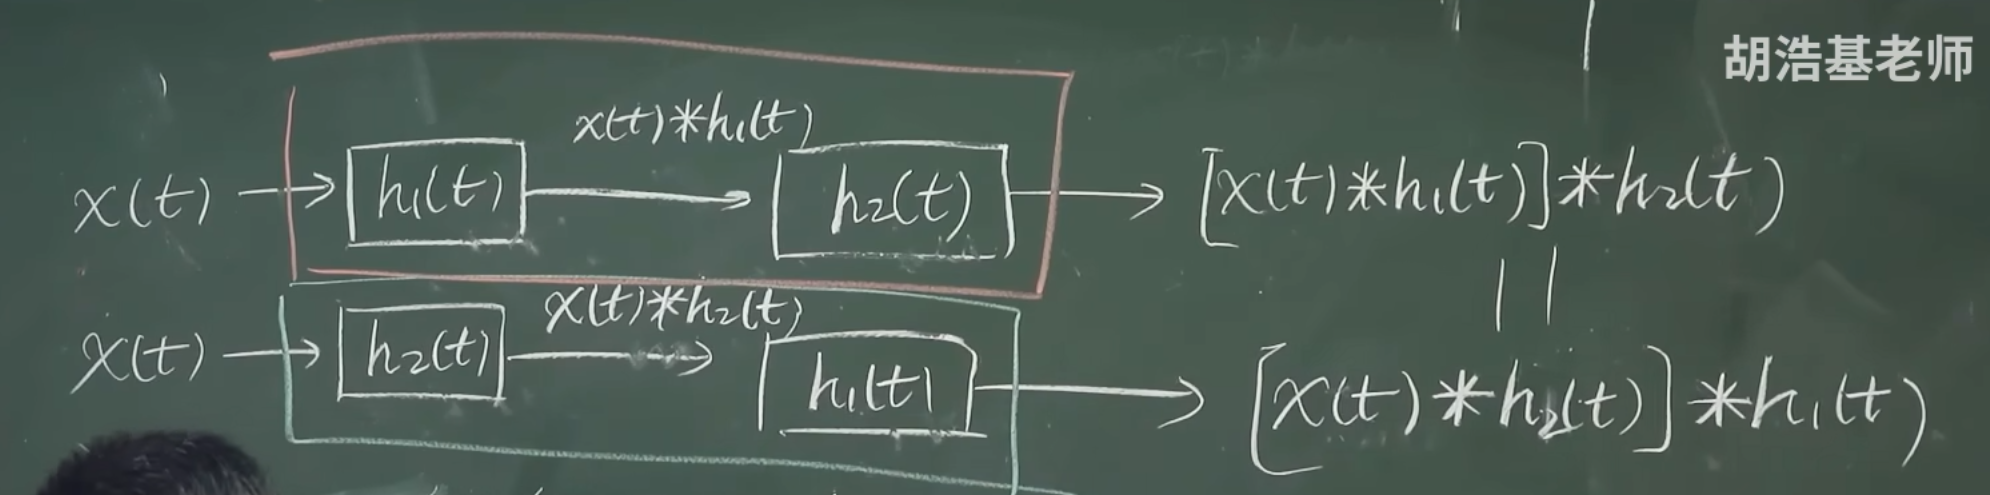 胡浩基老师
x(t)*h₁(t)
x(t) → h₁(t) → h₂(t) → [x(t)*h₁(t)]*h₂(t)
||
x(t)*h₂(t)
x(t) → h₂(t) → h₁(t) → [x(t)*h₂(t)]*h₁(t)